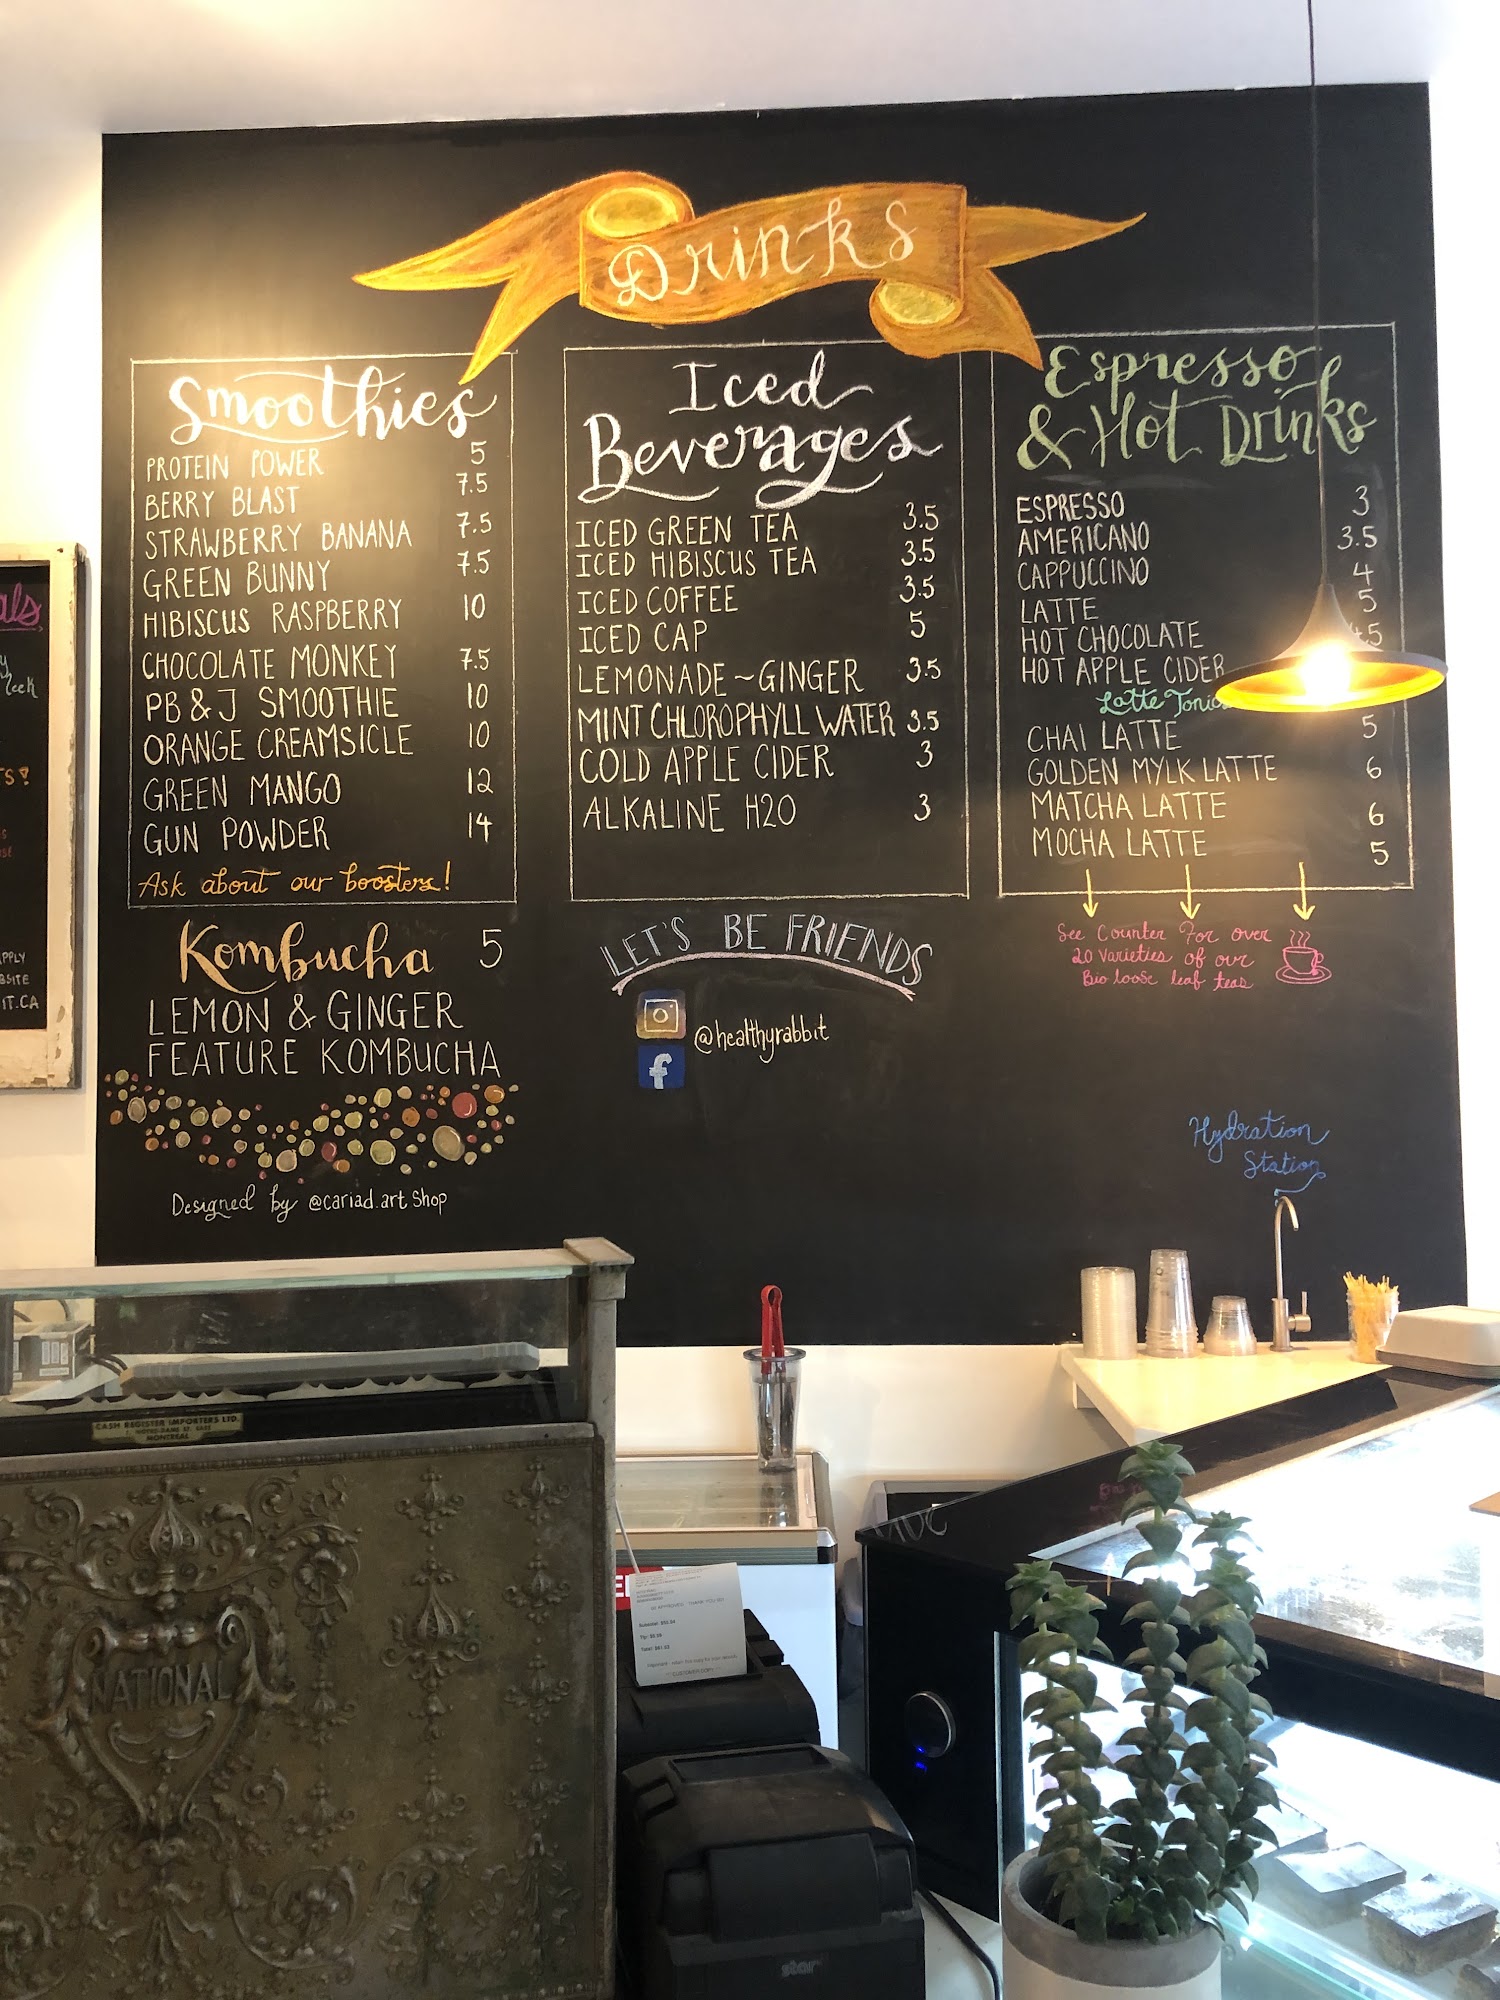 Drinks
Smoothies
PROTEIN POWER 5
BERRY BLAST 7.5
STRAWBERRY BANANA 7.5
GREEN BUNNY 7.5
HIBISCUS RASPBERRY 10
CHOCOLATE MONKEY 7.5
PB & J SMOOTHIE 10
ORANGE CREAMSICLE 10
GREEN MANGO 12
GUN POWDER 14
Ask about our boosters!
Kombucha 5
LEMON & GINGER
FEATURE KOMBUCHA
Designed by @cariad.art Shop
Iced
Beverages
ICED GREEN TEA 3.5
ICED HIBISCUS TEA 3.5
ICED COFFEE 3.5
ICED CAP 5
LEMONADE~GINGER 3.5
MINT CHLOROPHYLL WATER 3.5
COLD APPLE CIDER 3
ALKALINE H2O 3
LET'S BE FRIENDS
@healthyrabbit
Espresso
& Hot Drinks
ESPRESSO 3
AMERICANO 3.5
CAPPUCCINO 4
LATTE 5
HOT CHOCOLATE
HOT APPLE CIDER
Latte
CHAI LATTE 5
GOLDEN MYLK LATTE 6
MATCHA LATTE 6
MOCHA LATTE 5
See Counter For over
20 varieties of our
Bio loose leaf teas
Hydration
Station
CASH REGISTER IMPORTERS LTD.
MONTREAL
NATIONAL
star